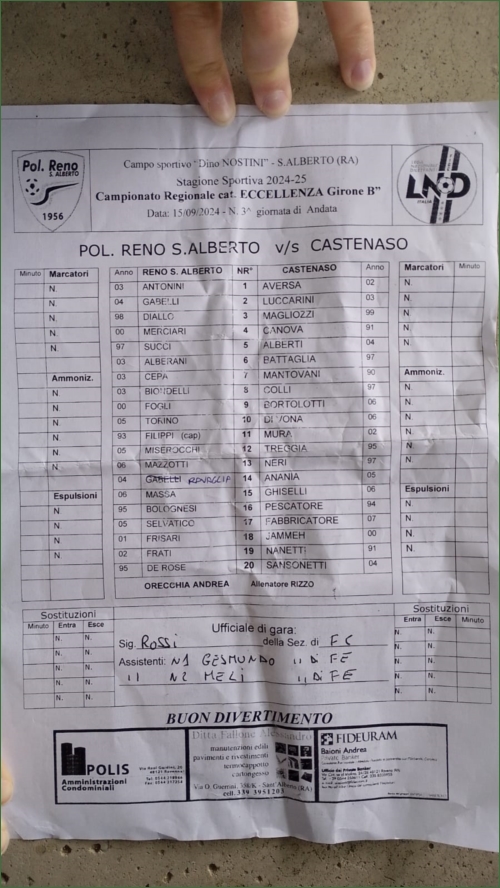 Pol. Reno
S. ALBERTO
1956
Campo sportivo "Dino NOSTINI" - S.ALBERTO (RA)
Stagione Sportiva 2024-25
Campionato Regionale cat. ECCELLENZA Girone B"
Data: 15/09/2024 - N. 3^ giornata di Andata
LND
ITALIA
POL. RENO S.ALBERTO v/s CASTENASO
Minuto Marcatori Anno RENO S. ALBERTO NR° CASTENASO Anno Marcatori Minuto
N. 03 ANTONINI 1 AVERSA 02 N.
N. 04 GABELLI 2 LUCCARINI 03 N.
N. 98 DIALLO 3 MAGLIOZZI 99 N.
N. 00 MERCIARI 4 CANOVA 91 N.
N. 97 SUCCI 5 ALBERTI 04 N.
03 ALBERANI 6 BATTAGLIA 97
Ammoniz. 03 CEPA 7 MANTOVANI 90 Ammoniz.
N 03 BIONDELLI 8 COLLI 97 N.
N. 00 FOGLI 9 BORTOLOTTI 06 N.
N. 05 TORINO 10 DI VONA 06 N.
N. 93 FILIPPI (cap) 11 MURA 02 N.
N. 05 MISEROCCHI 12 TREGGIA 95 N.
N. 06 MAZZOTTI 13 NERI 97 N.
04 GABELLI RAVAGLIA 14 ANANIA 05
Espulsioni 06 MASSA 15 GHISELLI 06 Espulsioni
N. 95 BOLOGNESI 16 PESCATORE 94 N.
N. 05 SELVATICO 17 FABBRICATORE 07 N.
N 01 FRISARI 18 JAMMEH 00 N.
02 FRATI 19 NANETTI 91
95 DE ROSE 20 SANSONETTI 04
ORECCHIA ANDREA Allenatore RIZZO
Sostituzioni
Minuto Entra Esce
N. N.
N. N.
N. N.
N. N.
N. N.
Ufficiale di gara:
Sig. Rossi della Sez. di FC
Assistenti: N1 GESMUNDO " di FE
" N2 MELI " di FE
Sostituzioni
Minuto Entra Esce
N. N.
N. N.
N. N.
N. N.
N. N.
BUON DIVERTIMENTO
POLIS
Amministrazioni
Condominiali
Ditta Fallone Alessandro
manutenzioni edili
pavimenti e rivestimenti
termocappotti
cartongesso
cell. 339 3951203
FIDEURAM
Baioni Andrea
Private Banker